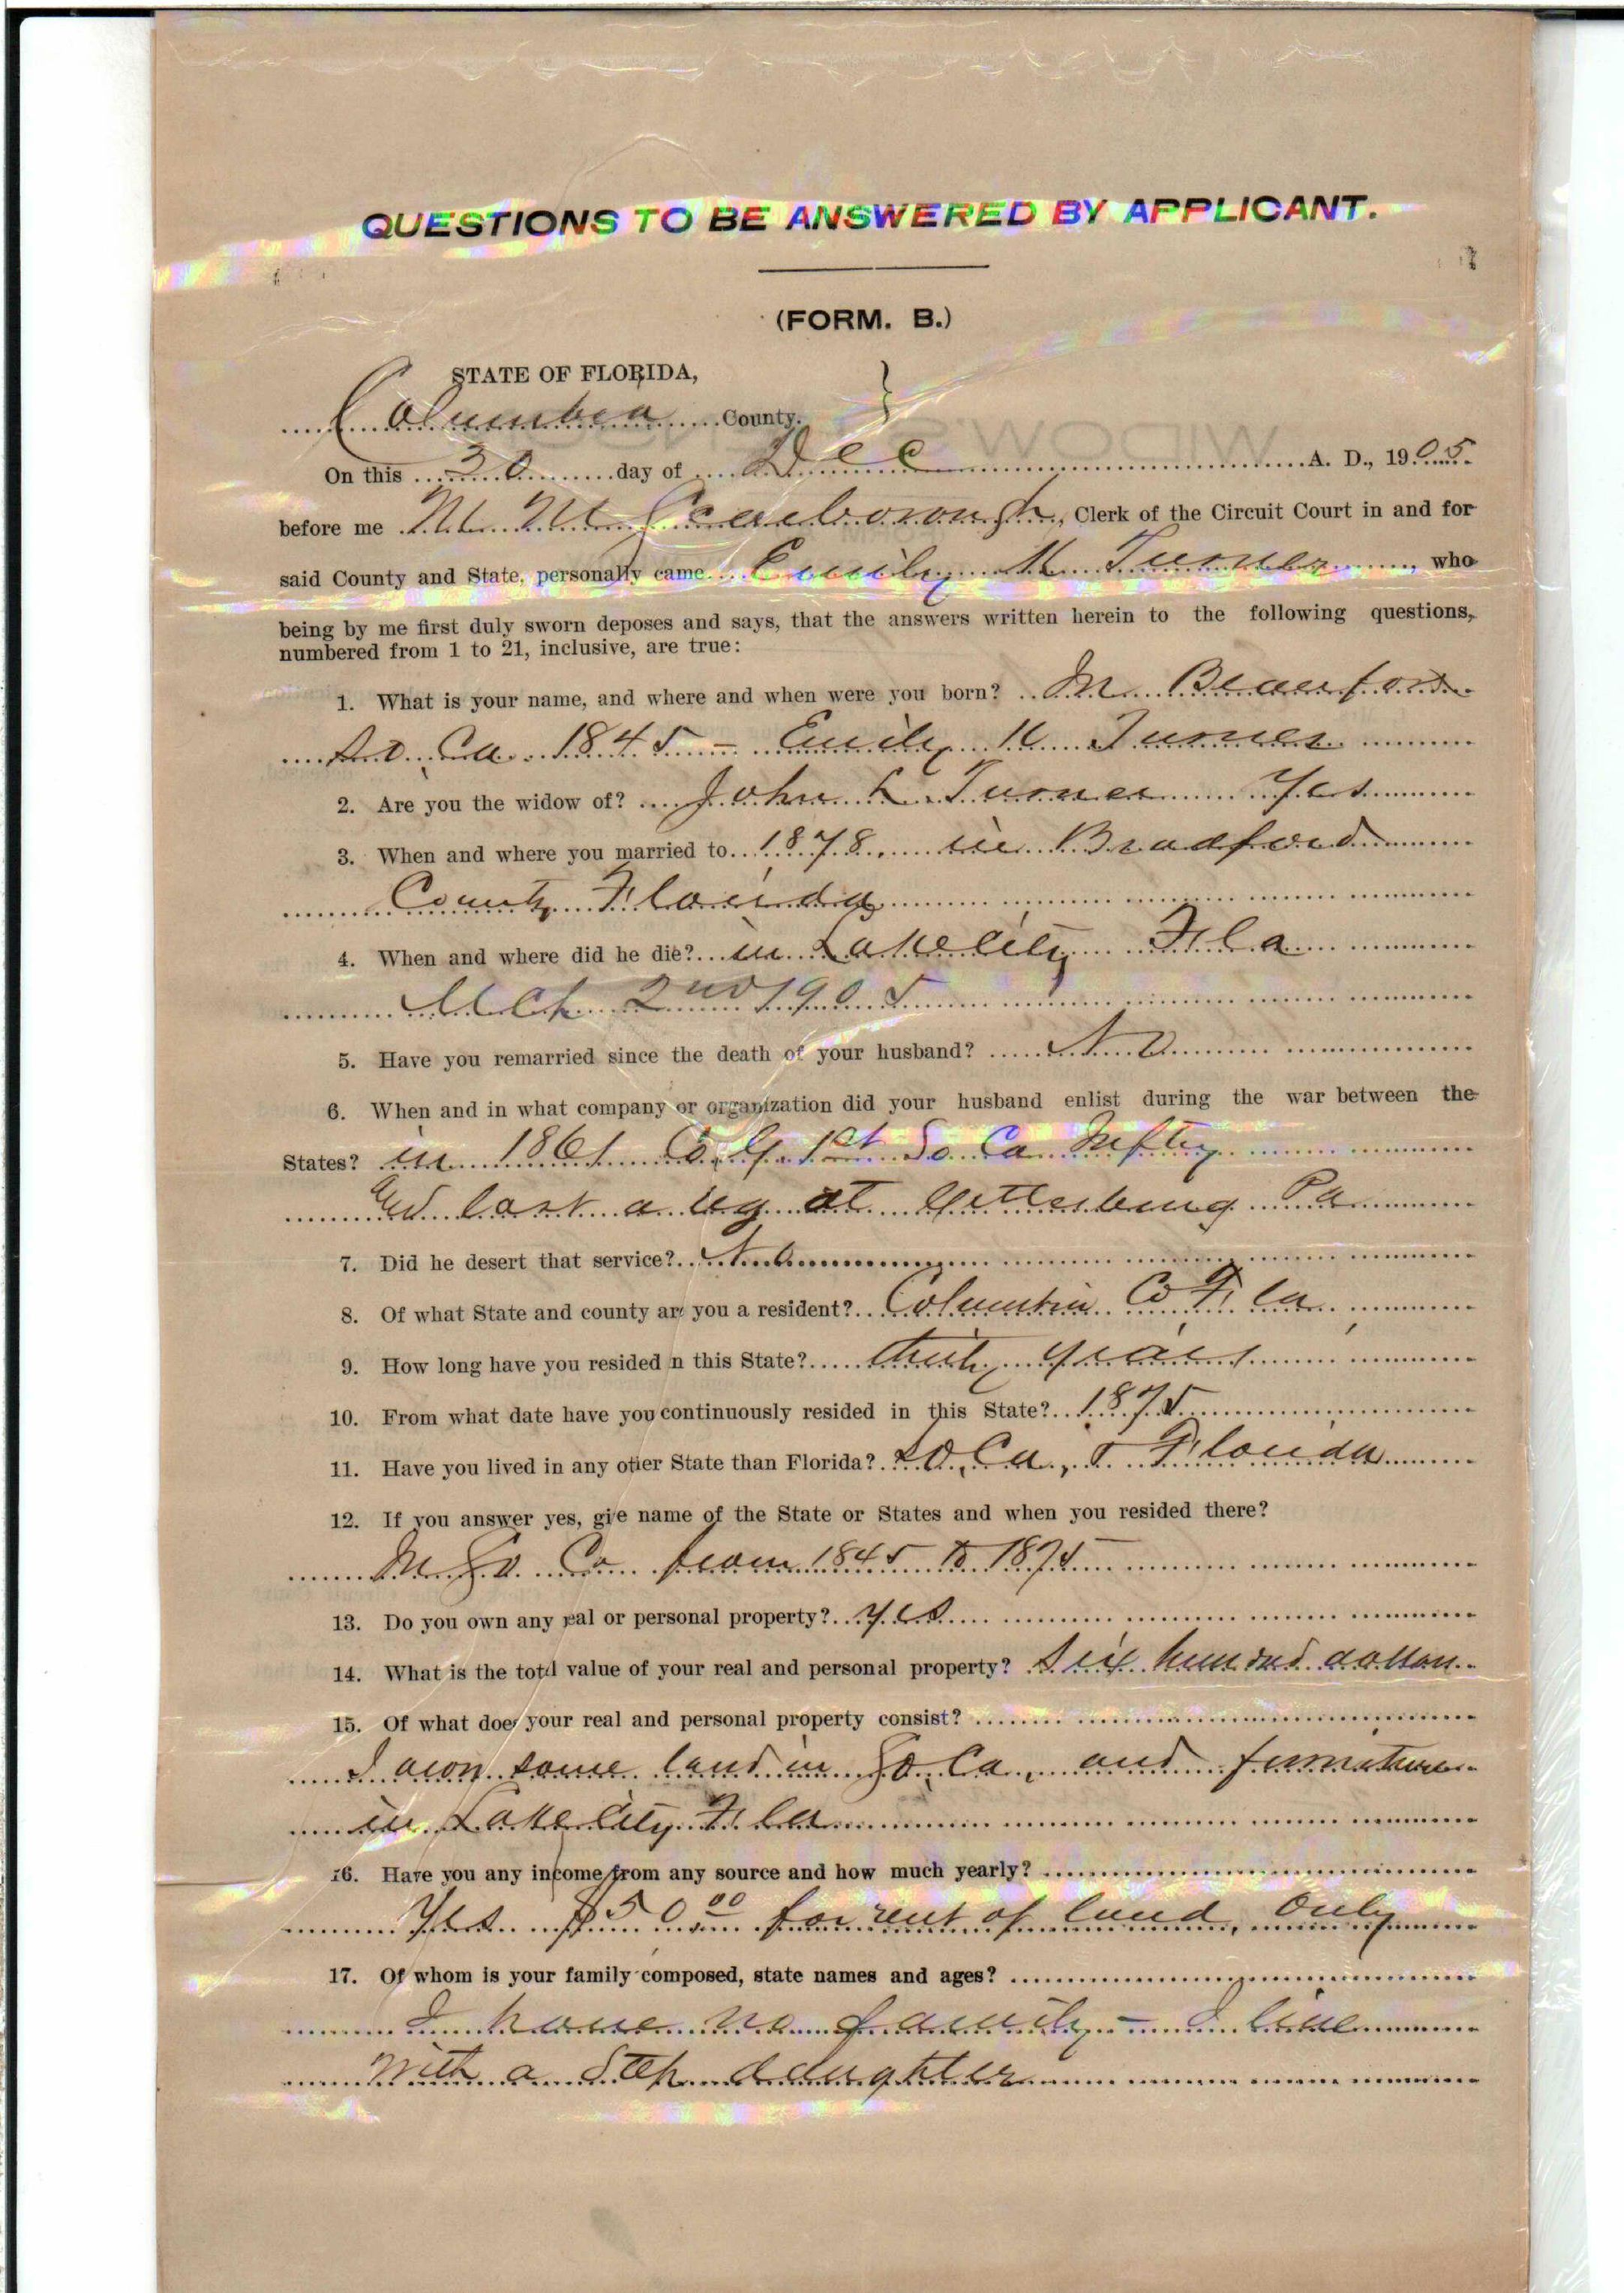 QUESTIONS TO BE ANSWERED BY APPLICANT.
(FORM. B.)
STATE OF FLORIDA,
Columbia County.
On this 30 day of Dec A. D., 1905.
before me M. M. Scarborough, Clerk of the Circuit Court in and for
said County and State, personally came Emily H Turner, who
being by me first duly sworn deposes and says, that the answers written herein to the following questions,
numbered from 1 to 21, inclusive, are true:
1. What is your name, and where and when were you born? In Beaufort
So. Ca. 1845 - Emily H Turner
2. Are you the widow of? John L. Turner Yes
3. When and where you married to 1878, in Bradford
County Florida
4. When and where did he die? in Lake City Fla
Mch 2nd 1905
5. Have you remarried since the death of your husband? No
6. When and in what company or organization did your husband enlist during the war between the
States? in 1861 Co. G. 1st So Ca Infty
and lost a leg at Gettesburg Pa
7. Did he desert that service? No
8. Of what State and county are you a resident? Columbia Co Fla
9. How long have you resided n this State? thirty years
10. From what date have you continuously resided in this State? 1875
11. Have you lived in any other State than Florida? So. Ca., & Florida
12. If you answer yes, gi e name of the State or States and when you resided there?
In So. Ca. from 1845 to 1875
13. Do you own any real or personal property? yes
14. What is the total value of your real and personal property? Six hundred dollars
15. Of what does your real and personal property consist?
I own some land in So. Ca, and furniture
in Lake City Fla
16. Have you any income from any source and how much yearly?
Yes $50.00 for rent of land, only
17. Of whom is your family composed, state names and ages?
I have no family - I live
with a step daughter
WIDOW'S